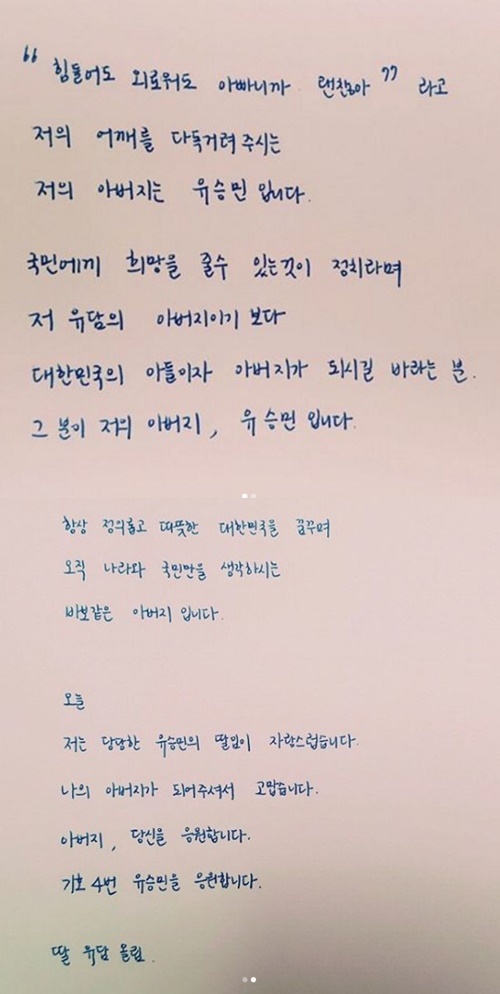 “힘들어도 외로워도 아빠니까 괜찮아” 라고
저의 어깨를 다독거려주시는
저의 아버지는 유승민 입니다.
국민에게 희망을 줄수 있는것이 정치라며
저 유담의 아버지이기 보다
대한민국의 아들이자 아버지가 되시길 바라는 분.
그 분이 저의 아버지, 유승민 입니다.
항상 정의롭고 따뜻한 대한민국을 꿈꾸며
오직 나라와 국민만을 생각하시는
바보같은 아버지 입니다.
오늘
저는 당당한 유승민의 딸임이 자랑스럽습니다.
나의 아버지가 되어주셔서 고맙습니다.
아버지, 당신을 응원합니다.
기호 4번 유승민을 응원합니다.
딸 유담 올림.